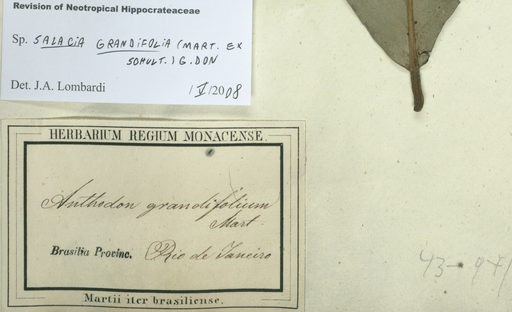 Revision of Neotropical Hippocrateaceae
Sp. SALACIA GRANDIFOLIA (MART. EX
SCHULT.) G. DON
Det. J.A. Lombardi / V /2008
HERBARIUM REGIUM MONACENSE.
Anthodon grandifolium
Mart.
Brasilia Provinc. Rio de Janeiro
Martii iter brasiliense.